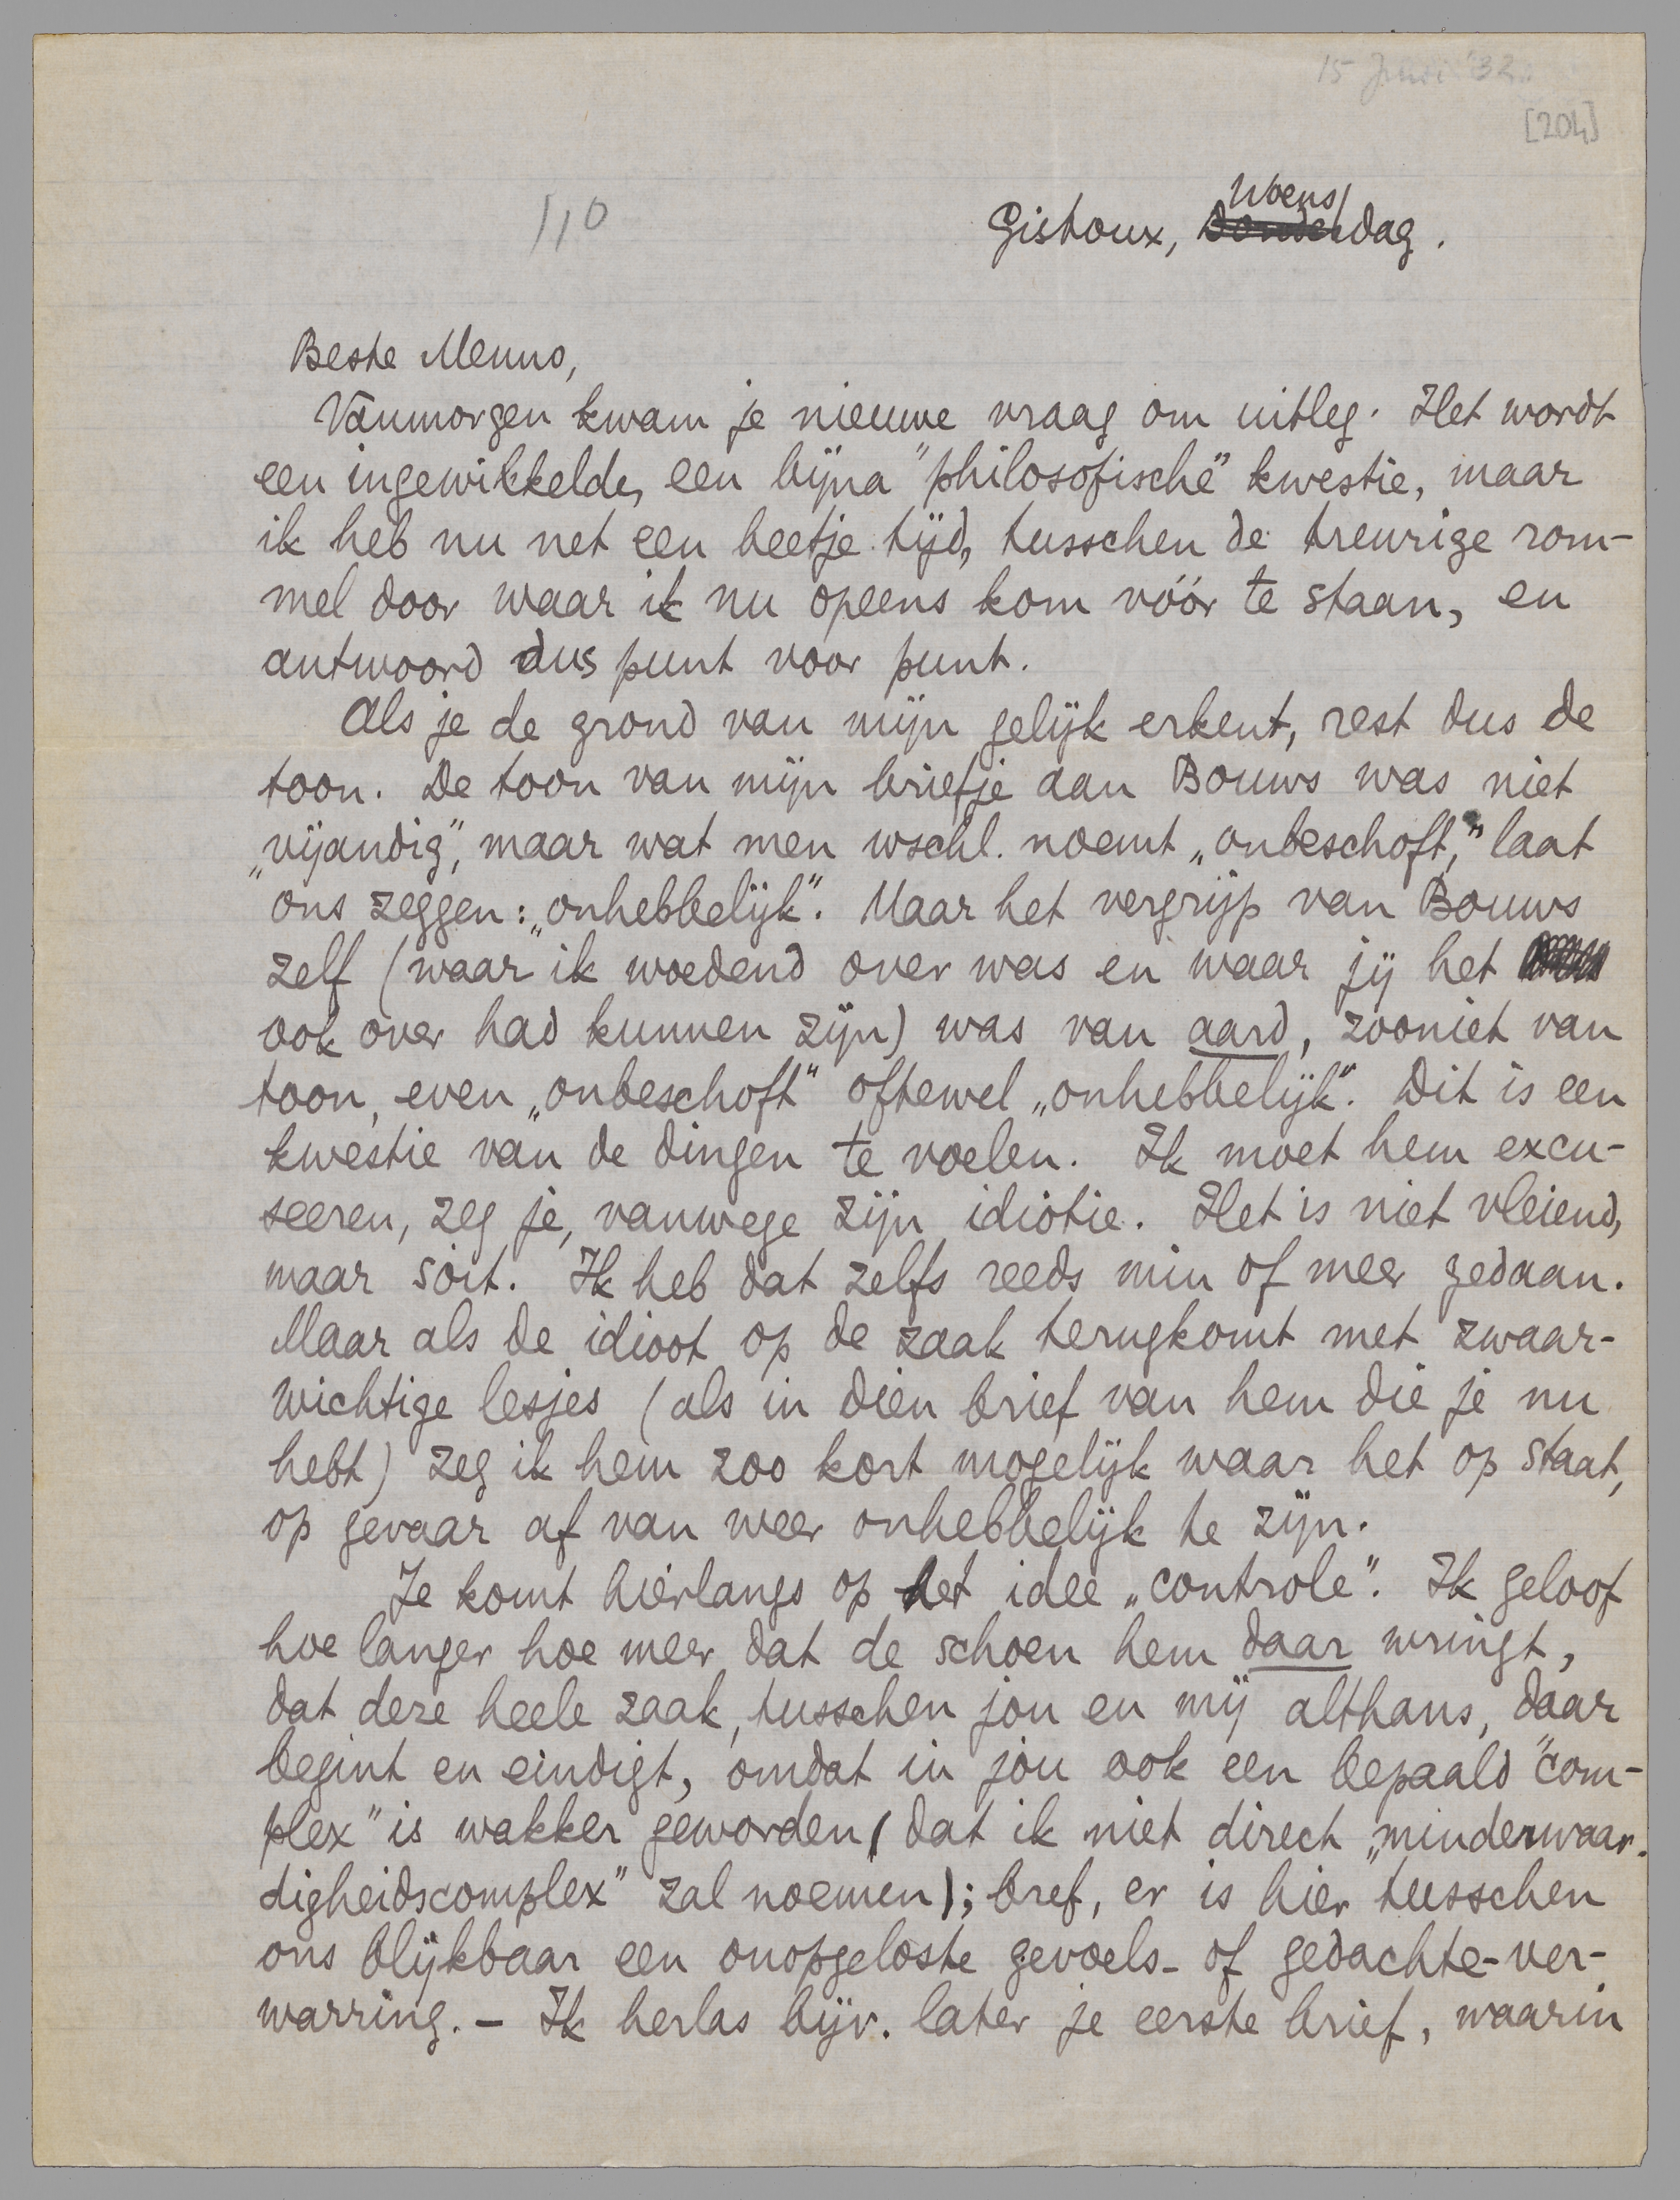 15 Juni '32.
[204]
110
Woens/
Gistoux, Donderdag.
Beste Menno,
Vanmorgen kwam je nieuwe vraag om uitleg. Het wordt
een ingewikkelde, een bijna "philosofische" kwestie, maar
ik heb nu net een beetje tijd, tusschen de treurige rom-
mel door waar ik nu opeens kom vóór te staan, en
antwoord dus punt voor punt.
Als je de grond van mijn gelijk erkent, rest dus de
toon. De toon van mijn briefje aan Bouws was niet
„vijandig", maar wat men wschl. noemt „onbeschoft," laat
ons zeggen: „onhebbelijk". Maar het vergrijp van Bouws
zelf (waar ik woedend over was en waar jij het
ook over had kunnen zijn) was van aard, zooniet van
toon, even „onbeschoft" oftewel „onhebbelijk". Dit is een
kwestie van de dingen te voelen. Ik moet hem excu-
seeren, zeg je, vanwege zijn idiotie. Het is niet vleiend,
maar soit. Ik heb dat zelfs reeds min of meer gedaan.
Maar als de idioot op de zaak terugkomt met zwaar-
wichtige lesjes (als in dien brief van hem die je nu
hebt) zeg ik hem zoo kort mogelijk waar het op staat,
op gevaar af van weer onhebbelijk te zijn.
Je komt hierlangs op het idee „controle". Ik geloof
hoe langer hoe meer dat de schoen hem daar wringt,
dat deze heele zaak, tusschen jou en mij althans, daar
begint en eindigt, omdat in jou ook een bepaald "com-
plex" is wakker geworden (dat ik niet direct „minderwaar-
digheidscomplex" zal noemen); bref, er is hier tusschen
ons blijkbaar een onopgeloste gevoels- of gedachte-ver-
warring. – Ik herlas bijv. later je eerste brief, waarin